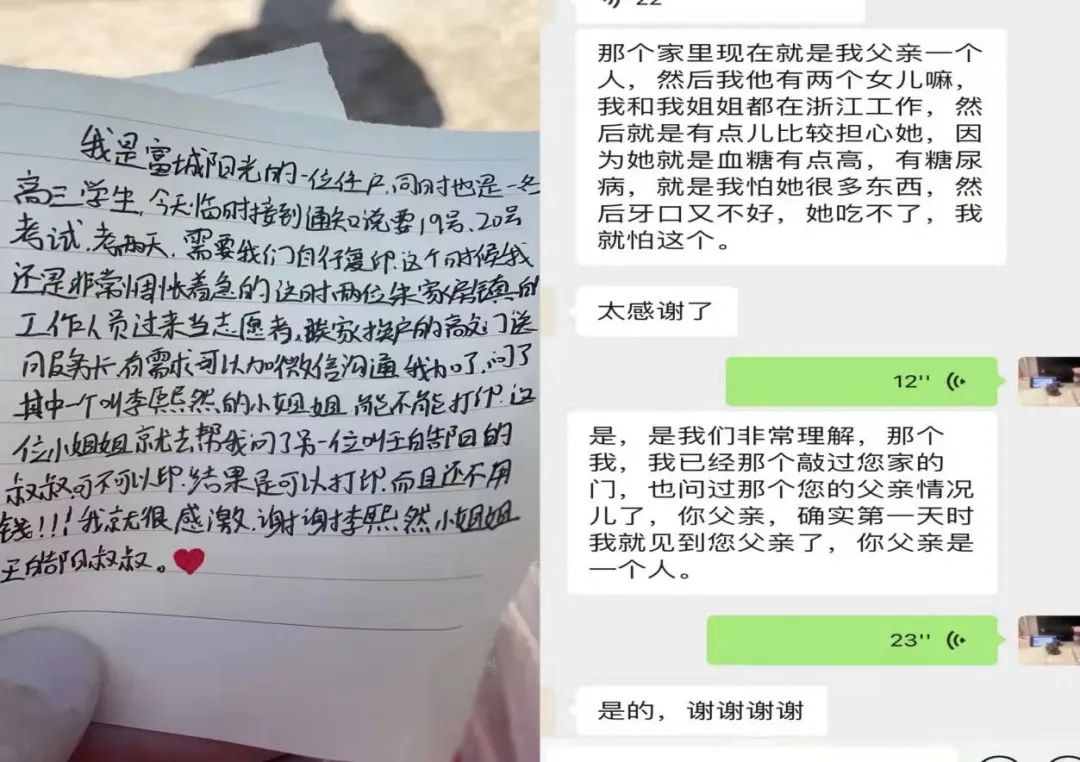 我是富城阳光的一位住户,同时也是一名
高三学生,今天临时接到通知说要19号、20号
考试,考两天,需要我们自行复印,这个时候我
还是非常惆怅着急的,这时两位朱家房镇的
工作人员过来当志愿者,挨家挨户的敲门送
问服务卡,有需求可以加微信沟通,我加了,问了
其中一个叫李熙然的小姐姐,能不能打印,这
位小姐姐就去帮我问了另一位叫王皓阳的
叔叔可不可以印,结果是可以打印,而且还不用
钱!!!我就很感激,谢谢李熙然小姐姐
王皓阳叔叔。❤
22
那个家里现在就是我父亲一个
人,然后我他有两个女儿嘛,
我和我姐姐都在浙江工作,然
后就是有点儿比较担心她,因
为她就是血糖有点高,有糖尿
病,就是我怕她很多东西,然
后牙口又不好,她吃不了,我
就怕这个。
太感谢了
12''
是,是我们非常理解,那个
我,我已经那个敲过您家的
门,也问过那个您的父亲情况
儿了,你父亲,确实第一天时
我就见到您父亲了,你父亲是
一个人。
23''
是的,谢谢谢谢